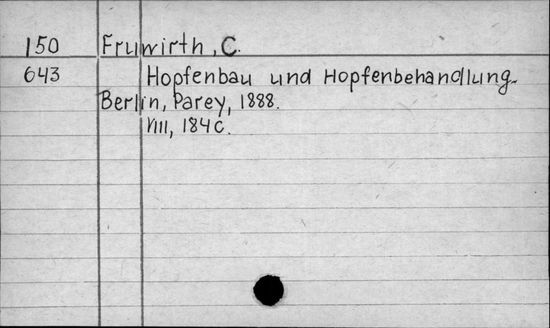 150 Fruwirth, C.
643 Hopfenbau und Hopfenbehandlung.
Berlin, Parey, 1888.
VIII, 184 C.